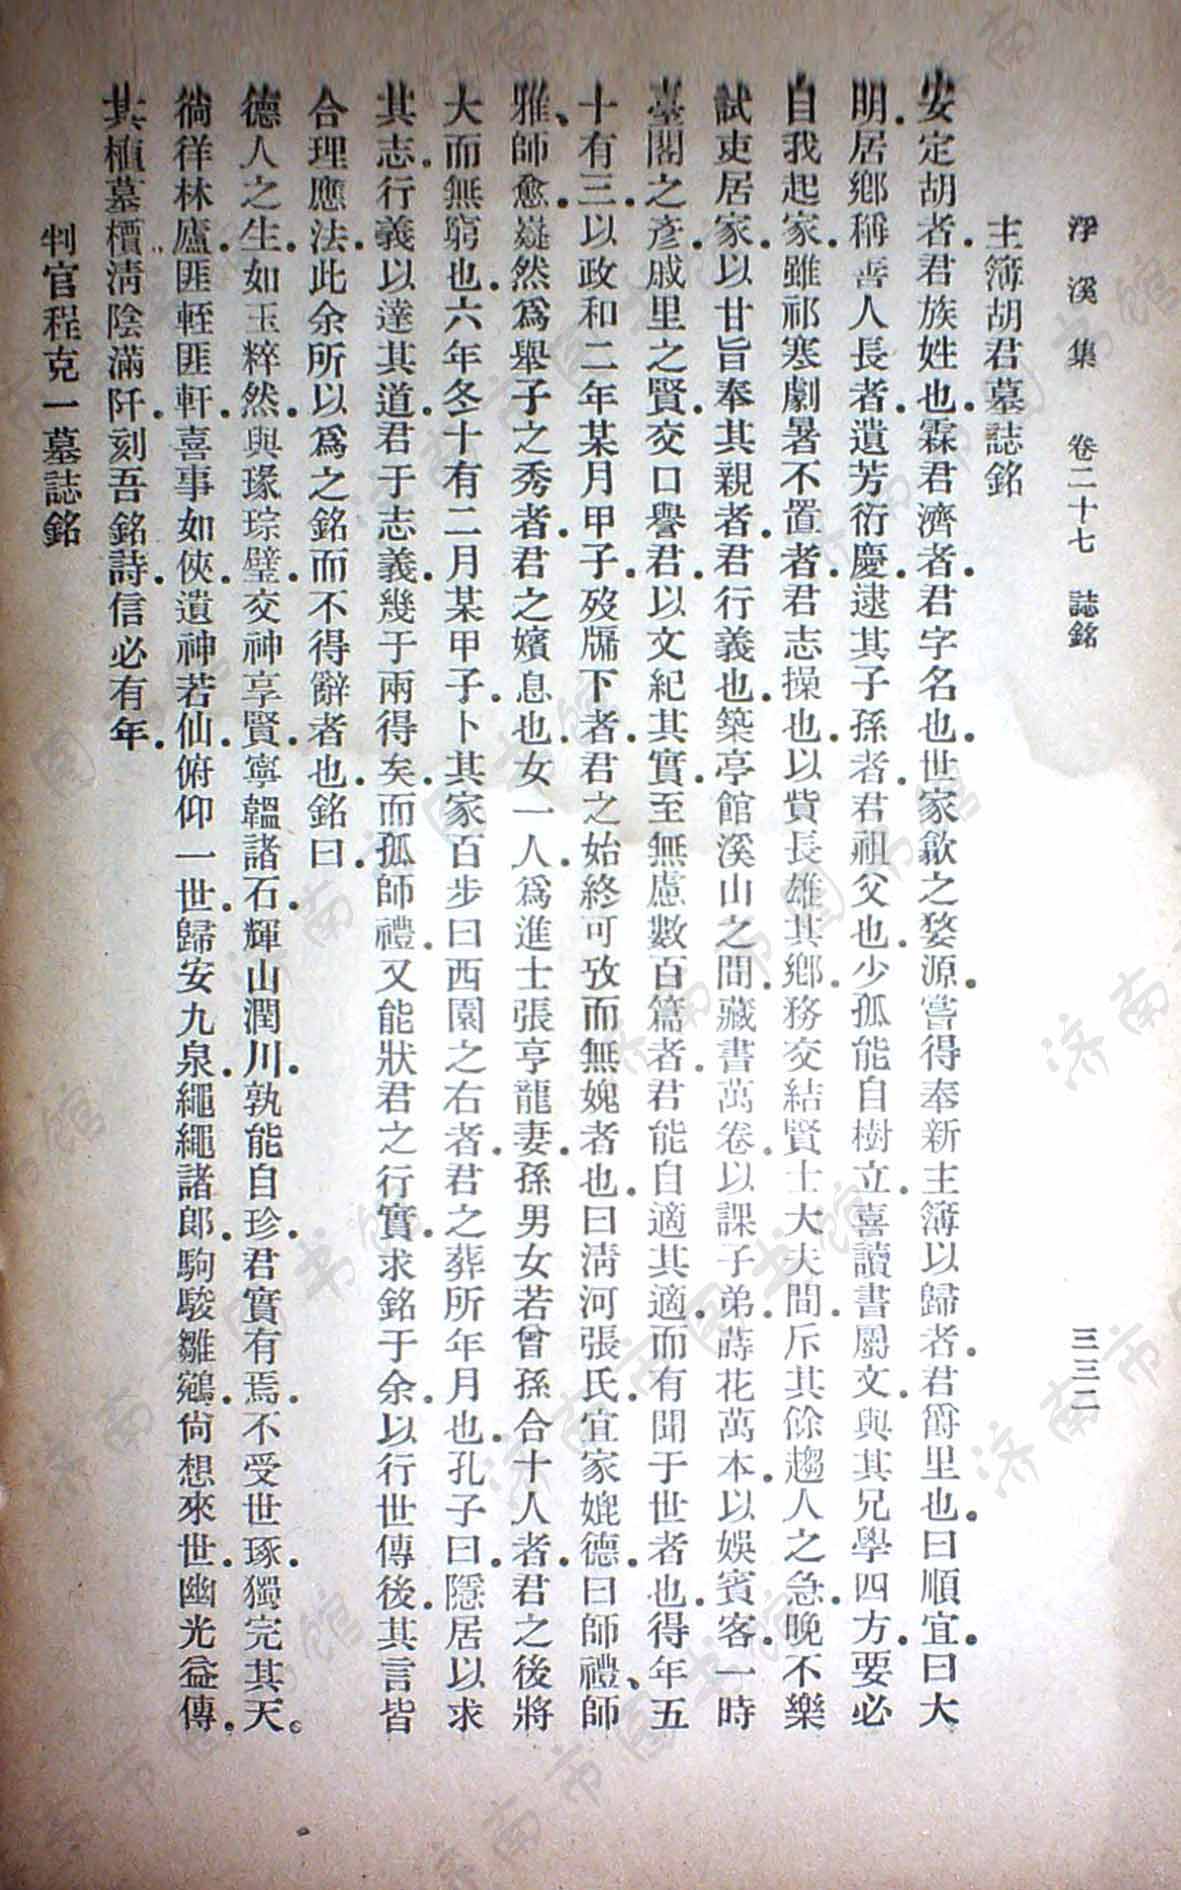 浮溪集　卷二十七　誌銘　三三二
主簿胡君墓誌銘
安定胡者．君族姓也．霖君濟者．君字名也．世家歙之婺源．嘗得奉新主簿以歸者．君爵里也．曰順宜．曰大
明．居鄉稱善人長者．遺芳衍慶．逮其子孫者．君祖父也．少孤能自樹立．喜讀書屬文．與其兄學四方．要必
自我起家．雖祁寒劇暑不置者．君志操也．以貲長雄其鄉．務交結賢士大夫間．斥其餘趨人之急．晚不樂
試吏居家．以甘旨奉其親者．君行義也．築亭館溪山之間．藏書萬卷．以課子弟．蒔花萬本．以娛賓客．一時
臺閣之彥．戚里之賢．交口譽君．以文紀其實．至無慮數百篇者．君能自適其適．而有聞于世者也．得年五
十有三．以政和二年某月甲子．歿牖下者．君之始終可攷而無媿者也．曰淸河張氏．宜家媲德．曰師禮、師
雅、師愈．嶷然爲舉子之秀者．君之嬪息也．女一人．爲進士張亨龍妻．孫男女若曾孫合十人者．君之後將
大而無窮也．六年冬十有二月某甲子．卜其家百步曰西園之右者．君之葬所年月也．孔子曰．隱居以求
其志．行義以達其道．君于志義．幾于兩得矣．而孤師禮．又能狀君之行實．求銘于余．以行世傳後．其言皆
合理應法．此余所以爲之銘．而不得辭者也．銘曰．
德人之生．如玉粹然．與瑑琮璧．交神享賢．寧韞諸石．輝山潤川．孰能自珍．君實有焉．不受世琢．獨完其天。
徜徉林廬．匪輊匪軒．喜事如俠．遺神若仙．俯仰一世．歸安九泉．繩繩諸郎．駒駿雛鵷．尙想來世．幽光益傳．
其植墓檟．淸陰滿阡．刻吾銘詩．信必有年．
判官程克一墓誌銘